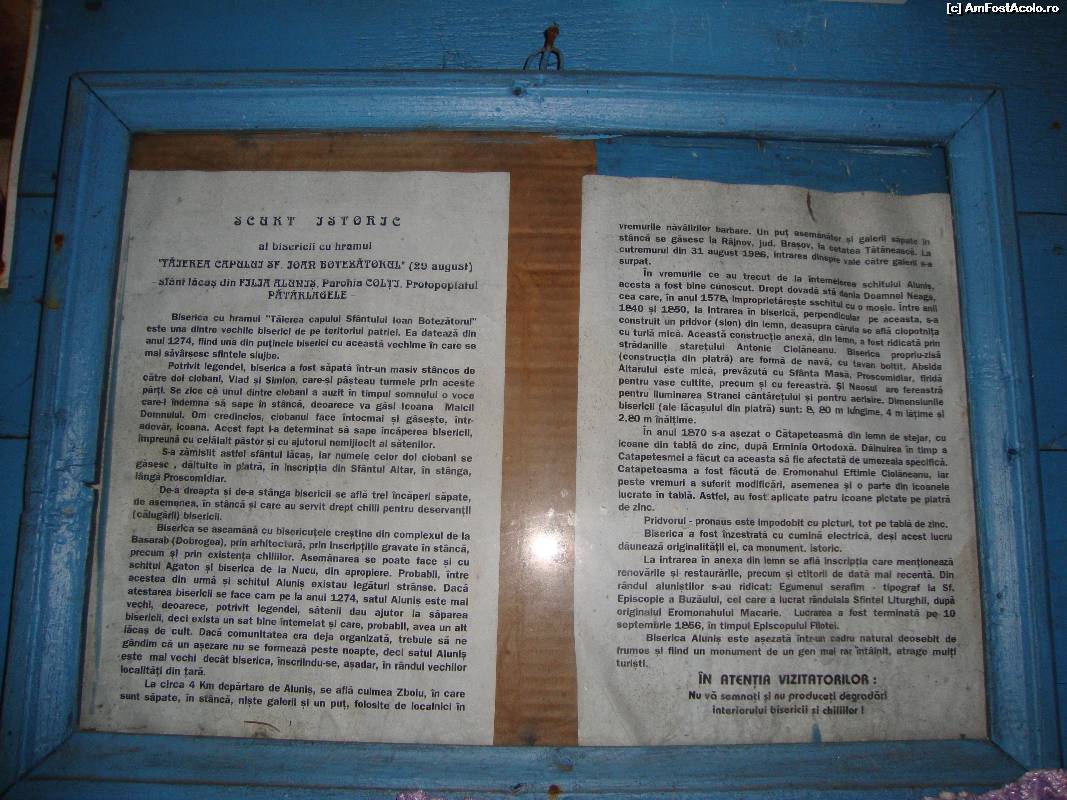 [c] AmFostAcolo.ro
SCURT ISTORIC
al bisericii cu hramul
"TĂIEREA CAPULUI SF. IOAN BOTEZĂTORUL" (29 august)
- sfânt lăcaş din FILIA ALUNIŞ, Parohia COLŢI, Protopopiatul
PĂTÂRLAGELE -
Biserica cu hramul "Tăierea capului Sfântului Ioan Botezătorul"
este una dintre vechile biserici de pe teritoriul patriei. Ea datează din
anul 1274, fiind una din puţinele biserici cu această vechime în care se
mai săvârşesc sfintele slujbe.
Potrivit legendei, biserica a fost săpată într-un masiv stâncos de
către doi ciobani, Vlad şi Simion, care-şi păşteau turmele prin aceste
părţi. Se zice că unul dintre ciobani a auzit în timpul somnului o voce
care-l îndemna să sape în stâncă, deoarece va găsi Icoana Maicii
Domnului. Om credincios, ciobanul face întocmai şi găseşte, într-
adevăr, icoana. Acest fapt l-a determinat să sape încăperea bisericii,
împreună cu celălalt păstor şi cu ajutorul nemijlocit al sătenilor.
S-a zămislit astfel sfântul lăcaş, iar numele celor doi ciobani se
găsesc , dăltuite în piatră, în inscripţia din Sfântul Altar, în stânga,
lângă Proscomidiar.
De-a dreapta şi de-a stânga bisericii se află trei încăperi săpate,
de asemenea, în stâncă şi care au servit drept chilii pentru deservanţii
(călugării) bisericii.
Biserica se aseamănă cu bisericuţele creştine din complexul de la
Basarab (Dobrogea), prin arhitectură, prin inscripţiile gravate în stâncă,
precum şi prin existenţa chiliilor. Asemănarea se poate face şi cu
schitul Agaton şi biserica de la Nucu, din apropiere. Probabil, între
acestea din urmă şi schitul Aluniş existau legături strânse. Dacă
atestarea bisericii se face cam pe la anul 1274, satul Aluniş este mai
vechi, deoarece, potrivit legendei, sătenii dau ajutor la săparea
bisericii, deci exista un sat bine întemeiat şi care, probabil, avea un alt
lăcaş de cult. Dacă comunitatea era deja organizată, trebuie să ne
gândim că un aşezare nu se formează peste noapte, deci satul Aluniş
este mai vechi decât biserica, înscriindu-se, aşadar, în rândul vechilor
localităţi din ţară.
La circa 4 Km depărtare de Aluniş, se află culmea Zboiu, în care
sunt săpate, în stâncă, nişte galerii şi un puţ, folosite de localnici în
vremurile năvălirilor barbare. Un puţ asemănător şi galerii săpate în
stâncă se găsesc la Râjnov, jud. Braşov, la cetatea Tătănească. La
cutremurul din 31 august 1986, intrarea dinspre vale către galerii s-a
surpat.
În vremurile ce au trecut de la întemeierea schitului Aluniş,
acesta a fost bine cunoscut. Drept dovadă stă dania Doamnei Neaga,
cea care, în anul 1578, împroprietăreşte sschitul cu o moşie. Între anii
1840 şi 1850, la intrarea în biserică, perpendicular pe aceasta, s-a
construit un pridvor (slon) din lemn, deasupra căruia se află clopotniţa
cu turlă mică. Această construcţie anexă, din lemn, a fost ridicată prin
strădaniile stareţului Antonie Ciolăneanu. Biserica propriu-zisă
(construcţia din piatră) are formă de navă, cu tavan boltit. Absida
Altarului este mică, prevăzută cu Sfânta Masă, Proscomidiar, firidă
pentru vase cultite, precum şi cu fereastră. Şi Naosul are fereastră
pentru iluminarea Stranei cântăreţului şi pentru aerisire. Dimensiunile
bisericii (ale lăcaşului din piatră) sunt: 8, 80 m lungime, 4 m lăţime şi
2,80 m înălţime.
În anul 1870 s-a aşezat o Cătapeteasmă din lemn de stejar, cu
icoane din tablă de zinc, după Erminia Ortodoxă. Dăinuirea în timp a
Catapetesmei a făcut ca aceasta să fie afectată de umezeala specifică.
Catapeteasma a fost făcută de Eromonahul Eftimie Ciolăneanu, iar
peste vremuri a suferit modificări, asemenea şi o parte din icoanele
lucrate în tablă. Astfel, au fost aplicate patru icoane pictate pe piatră
de zinc.
Pridvorul - pronaus este împodobit cu picturi, tot pe tablă de zinc.
Biserica a fost înzestrată cu cumină electrică, deşi acest lucru
dăunează originalităţii ei, ca monument. istoric.
La intrarea în anexa din lemn se află inscripţia care menţionează
renovările şi restaurările, precum şi ctitorii de dată mai recentă. Din
rândul aluniştilor s-au ridicat: Egumenul serafim - tipograf la Sf.
Episcopie a Buzăului, cel care a lucrat rânduiala Sfintei Liturghii, după
originalul Eromonahului Macarie. Lucrarea a fost terminată pe 10
septembrie 1856, în timpul Episcopului Filotei.
Biserica Aluniş este aşezată într-un cadru natural deosebit de
frumos şi fiind un monument de un gen mai rar întâlnit, atrage mulţi
turişti.
ÎN ATENŢIA VIZITATORILOR :
Nu vă semnaţi şi nu produceţi degradări
interiorului bisericii şi chiliilor !